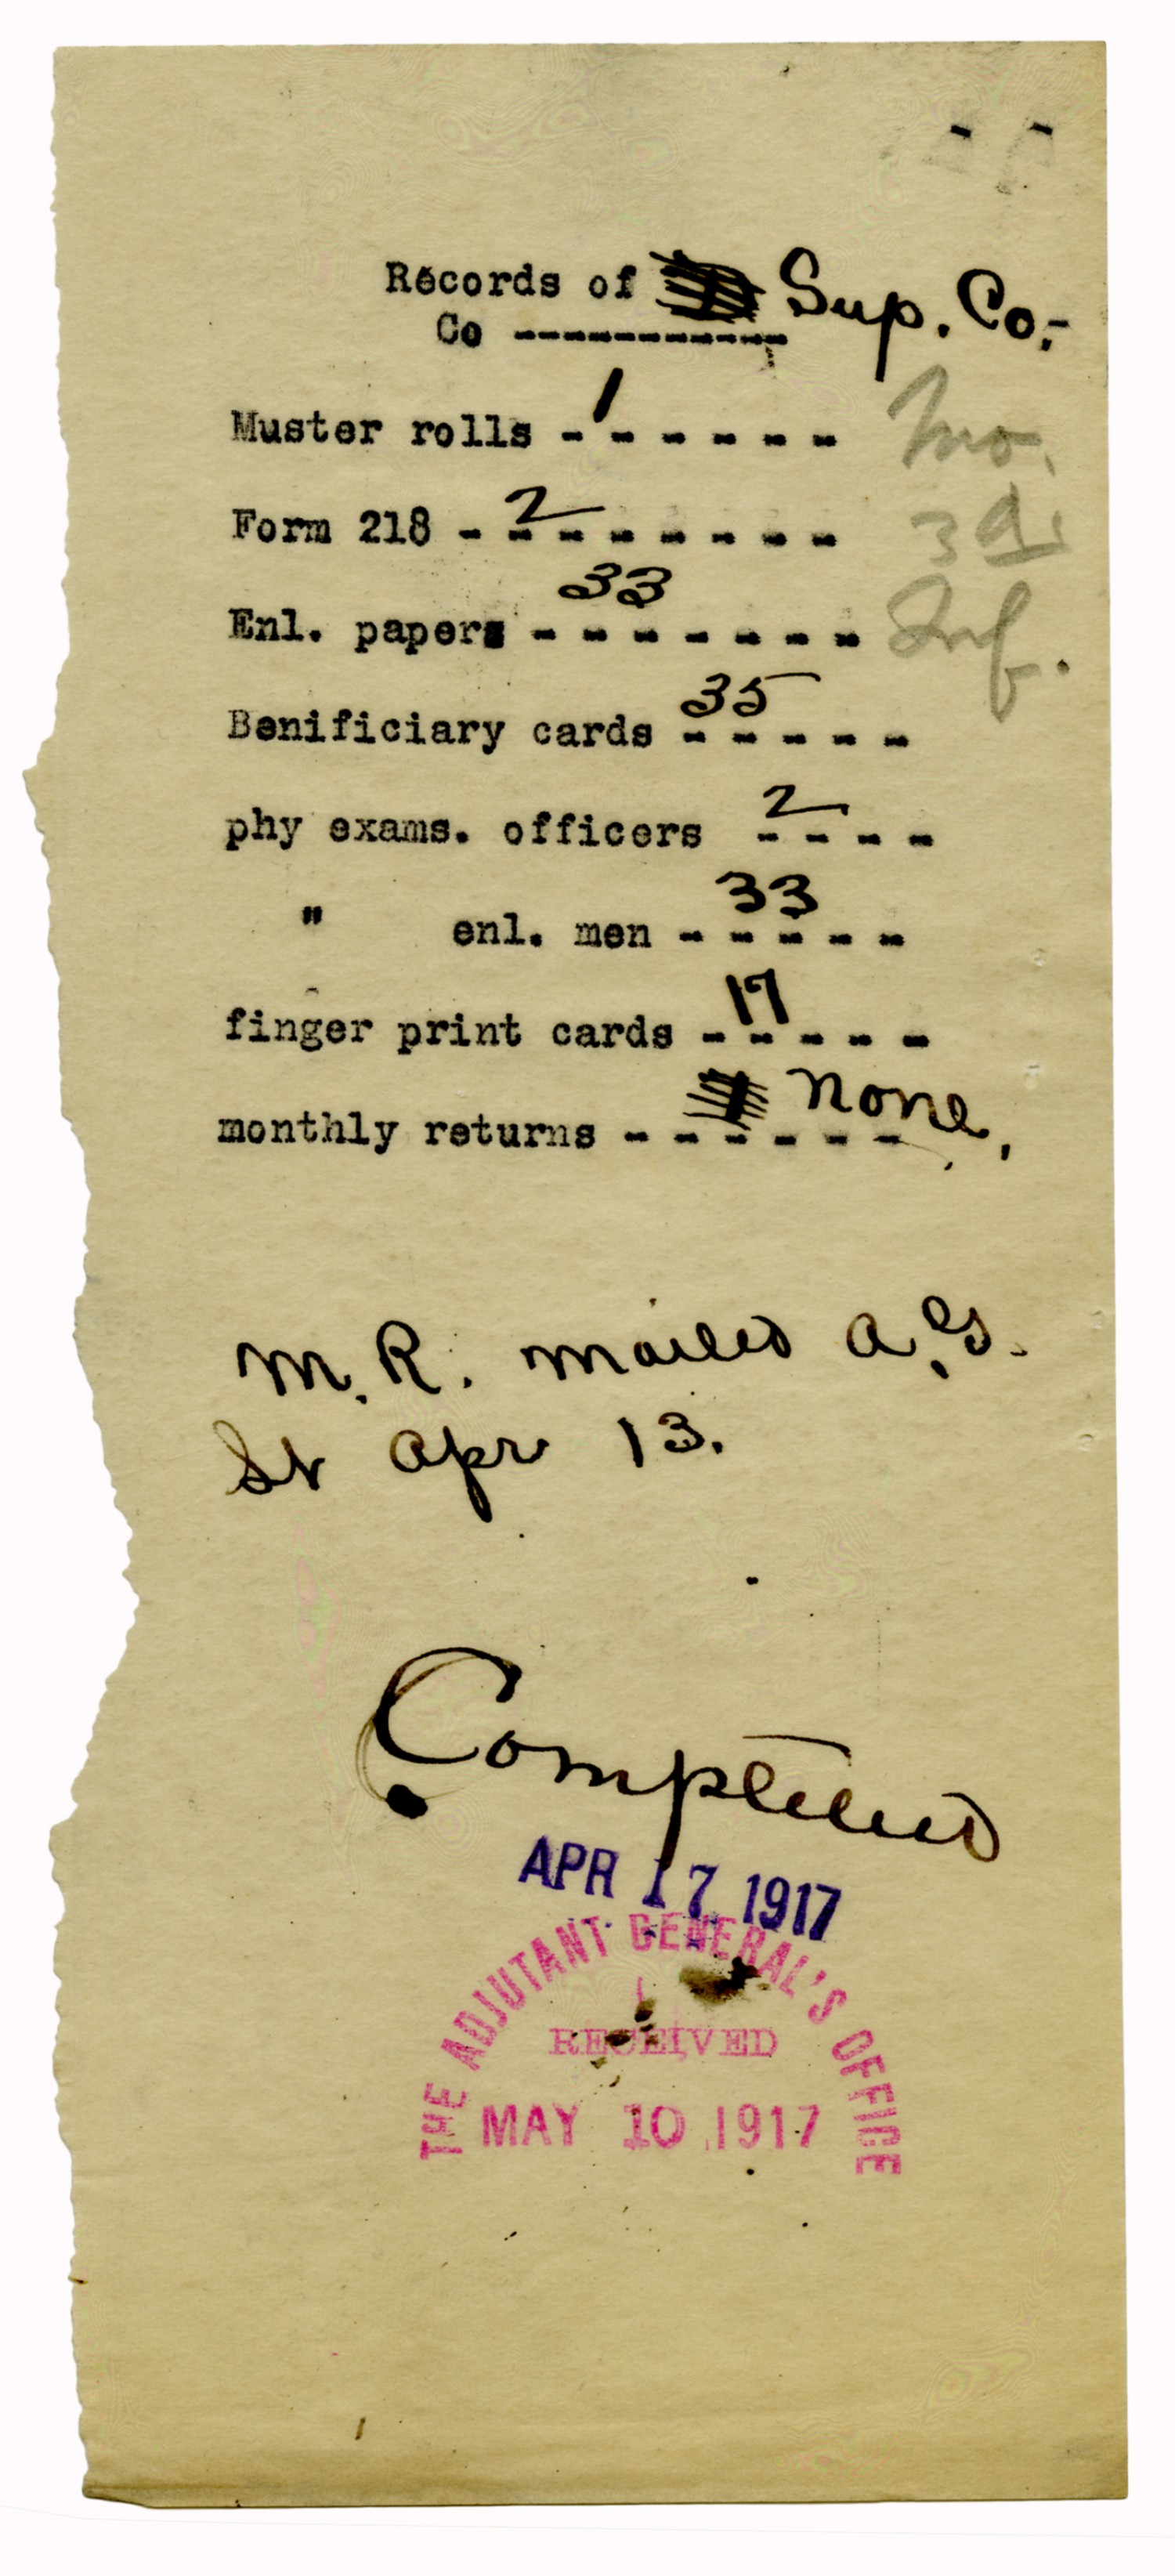 Records of Sup. Co.-
Co -----------
Muster rolls - 1 - - - - -
Mo.
Form 218 - 2 - - - - - - -
3d
Enl. papers - 33 - - - - - -
Inf.
Benificiary cards 35 - - - - -
phy exams. officers 2 - - - -
" enl. men - 33 - - - -
finger print cards - 17 - - - -
monthly returns - - - - - - none,
M. R. mailed A. G.
Apr 13.
Completed
APR 17 1917
THE ADJUTANT GENERAL'S OFFICE
RECEIVED
MAY 10 1917